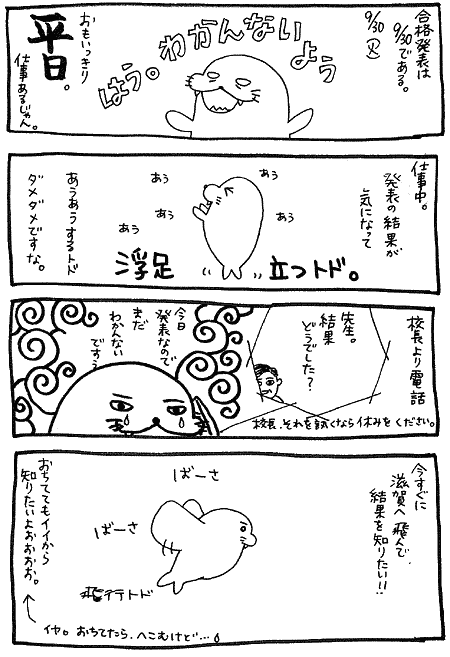 合格発表は
9/30である。
9/30
(火)
はう。わかんないよう
おもいっきり
平日。
仕事あるじゃん。
仕事中。
発表の結果が
気になって
あぅ
あぅ
あぅ
あぅ
あぅ
浮足立つトド。
あうあうするトド
ダメダメですな。
校長より電話
先生。
結果
どうでした？
校長、それを訊くなら休みをください。
今日
発表なので
まだ
わかんない
ですぅ
今すぐに
滋賀へ飛んで、
結果を知りたい!!
ばーさ
ばーさ
飛行トド
おちててもイイから
知りたいよぉぉぉぉ。
イヤ。おちてたら、へこむけど…。